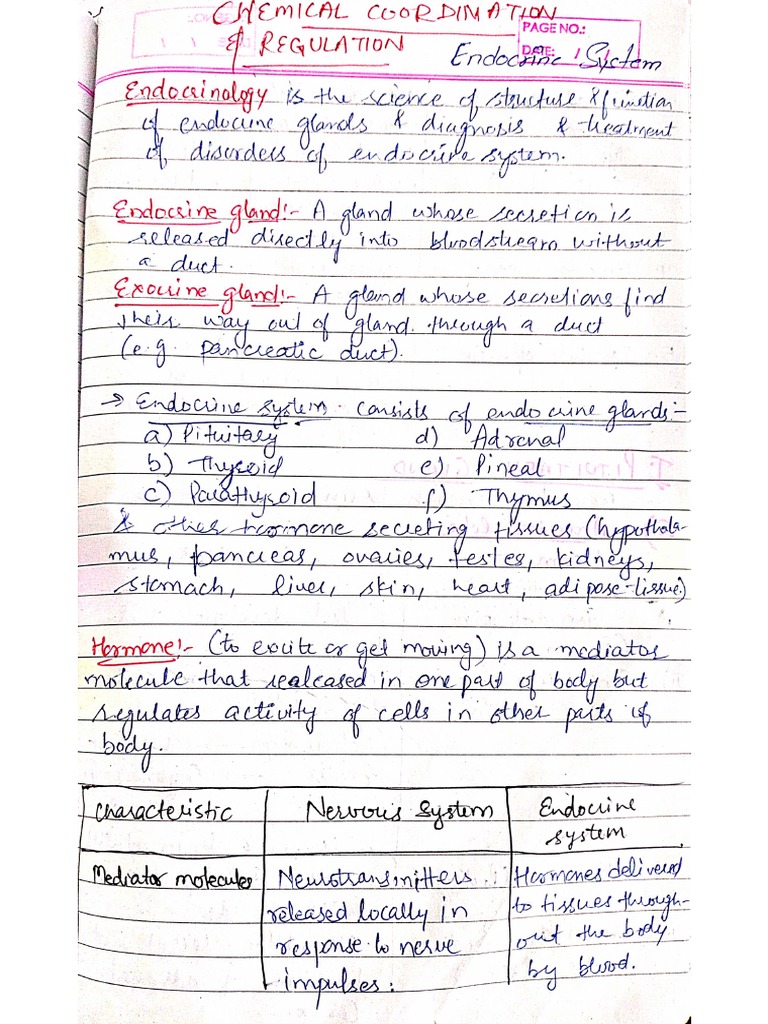 CHEMICAL COORDINATION
& REGULATION
PAGE NO.:
DATE: / /
Endocrine System
Endocrinology is the science of structure & function
of endocine glands & diagnosis & treatment
of disorders of endocrine system.
Endocrine gland:- A gland whose secretion is
released directly into bloodstream without
a duct.
Exocrine gland:- A gland whose secretions find
their way out of gland through a duct
(e.g. pancreatic duct).
→ Endocrine system consists of endocrine glands:-
a) Pituitary d) Adrenal
b) Thyroid e) Pineal
c) Parathyroid f) Thymus
& other hormone secreting tissues (hypothala-
mus, pancreas, ovaries, testes, kidneys,
stomach, liver, skin, heart, adipose-tissue)
Hormone:- (to excite or get moving) is a mediator
molecule that realeased in one part of body but
regulates activity of cells in other parts of
body.
Characteristic Nervous System Endocrine
system
Mediator molecules Neurotransmitters Hormones delivered
released locally in to tissues through-
response to nerve out the body
impulses. by blood.